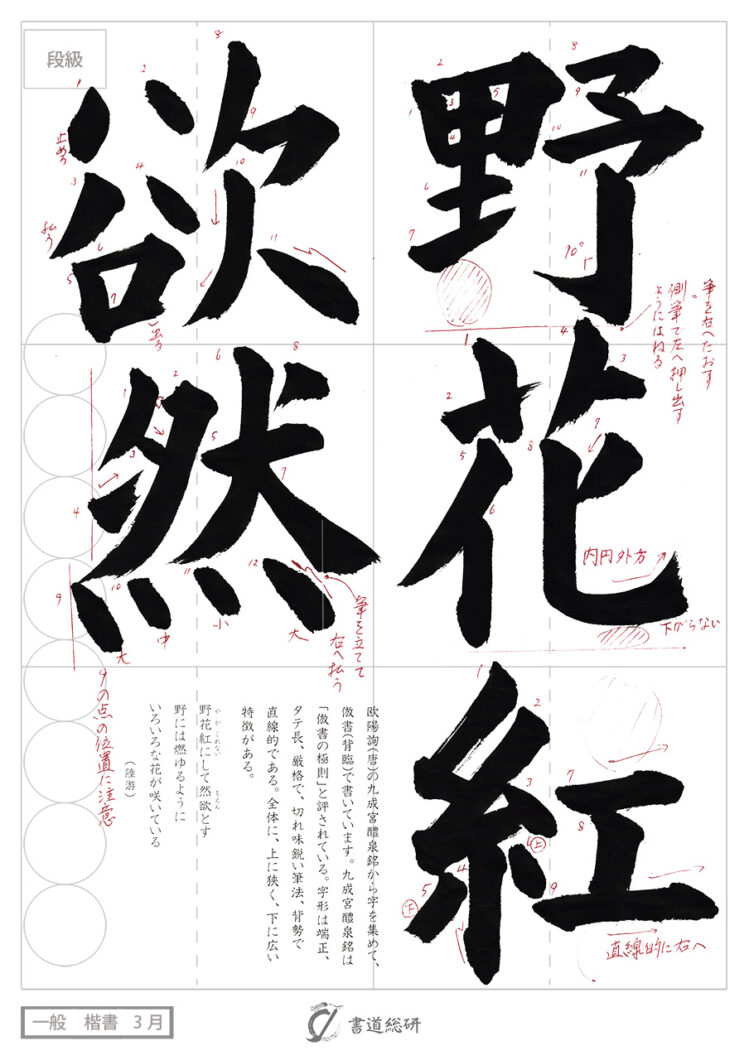 段級
野花紅
欲然
止める
払う
出る
90°
筆を右へたおす
側筆で左へ押し出す
ようにはねる
内円外方
下がらない
筆を立てて
右へ払う
大
中
小
大
9の点の位置に注意
上
下
直線的に右へ
欧陽詢(唐)の九成宮醴泉銘から字を集めて、
倣書(背臨)で書いています。九成宮醴泉銘は
「倣書の極則」と評されている。字形は端正、
タテ長、厳格で、切れ味鋭い筆法、背勢で
直線的である。全体に、上に狭く、下に広い
特徴がある。
やかくれない もえん
野花紅にして然欲とす
野には燃ゆるように
いろいろな花が咲いている
(陸游)
一般 楷書 3月
書道総研